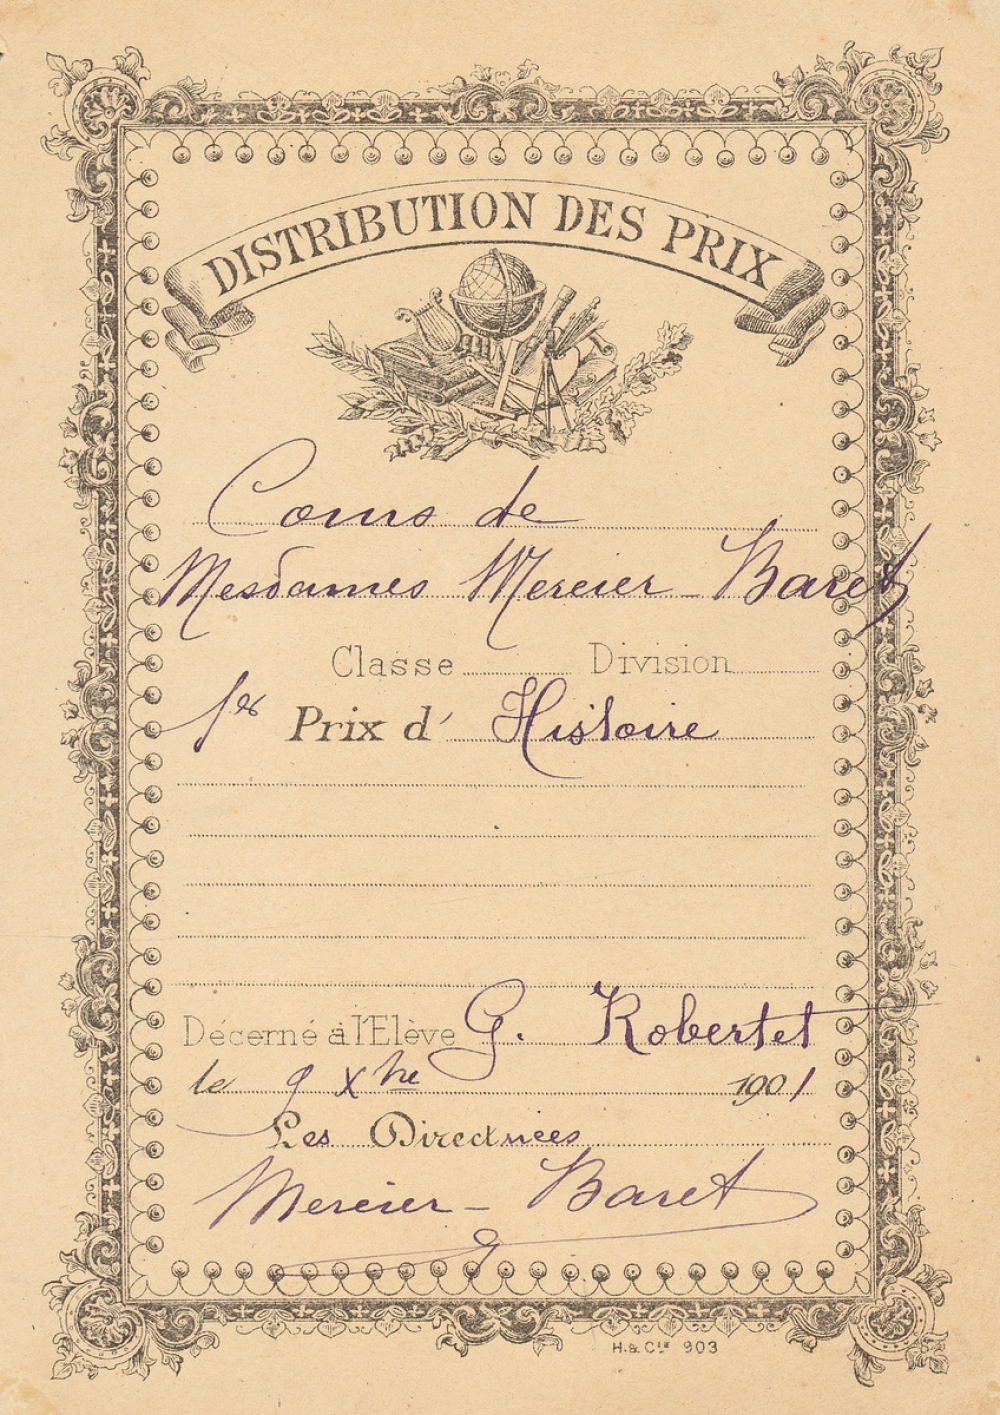 DISTRIBUTION DES PRIX
Cours de
Mesdames Mercier - Baret
Classe Division
1er Prix d' Histoire
Décerné à l'Elève G. Robertet
le 9 Xbre 1901
Les Directrices
Mercier - Baret
H. & Cie 903